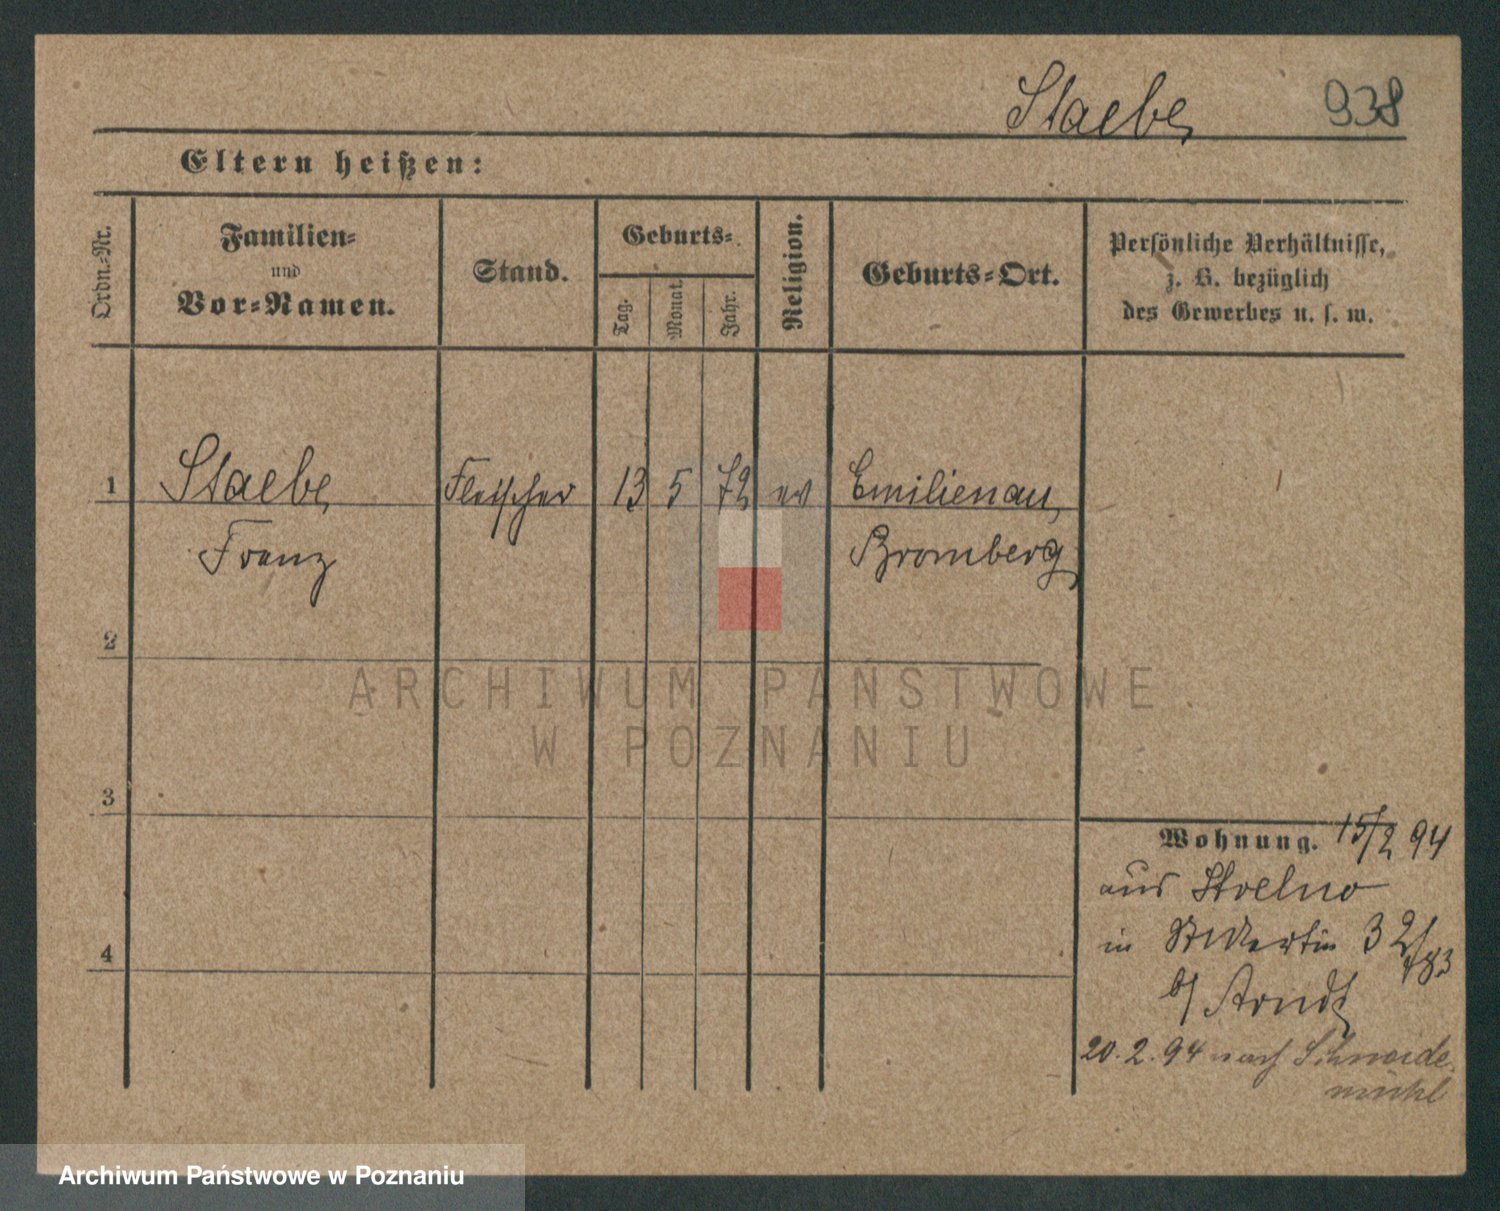 Staebe, 938
Eltern heißen:
Ordn.-Nr.
Familien-
und
Vor-Namen.
Stand.
Geburts-
Tag.
Monat.
Jahr.
Religion.
Geburts-Ort.
Persönliche Verhältnisse,
z. B. bezüglich
des Gewerbes u. s. w.
1 Staebe, Fleischer 13 5 72 ev Emilienau,
Franz Bromberg,
2
3
4
ARCHIWUM PAŃSTWOWE
W POZNANIU
Wohnung. 15/2 94
aus Strelno
in St Martin 3 2/
b/ Arndt
20.2.94 nach Schneide-
mühl
Archiwum Państwowe w Poznaniu